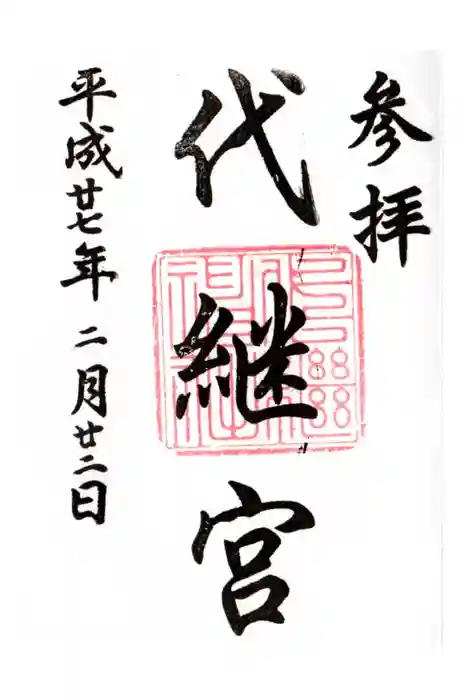 参拝
代継宮
平成廿七年 二月廿二日